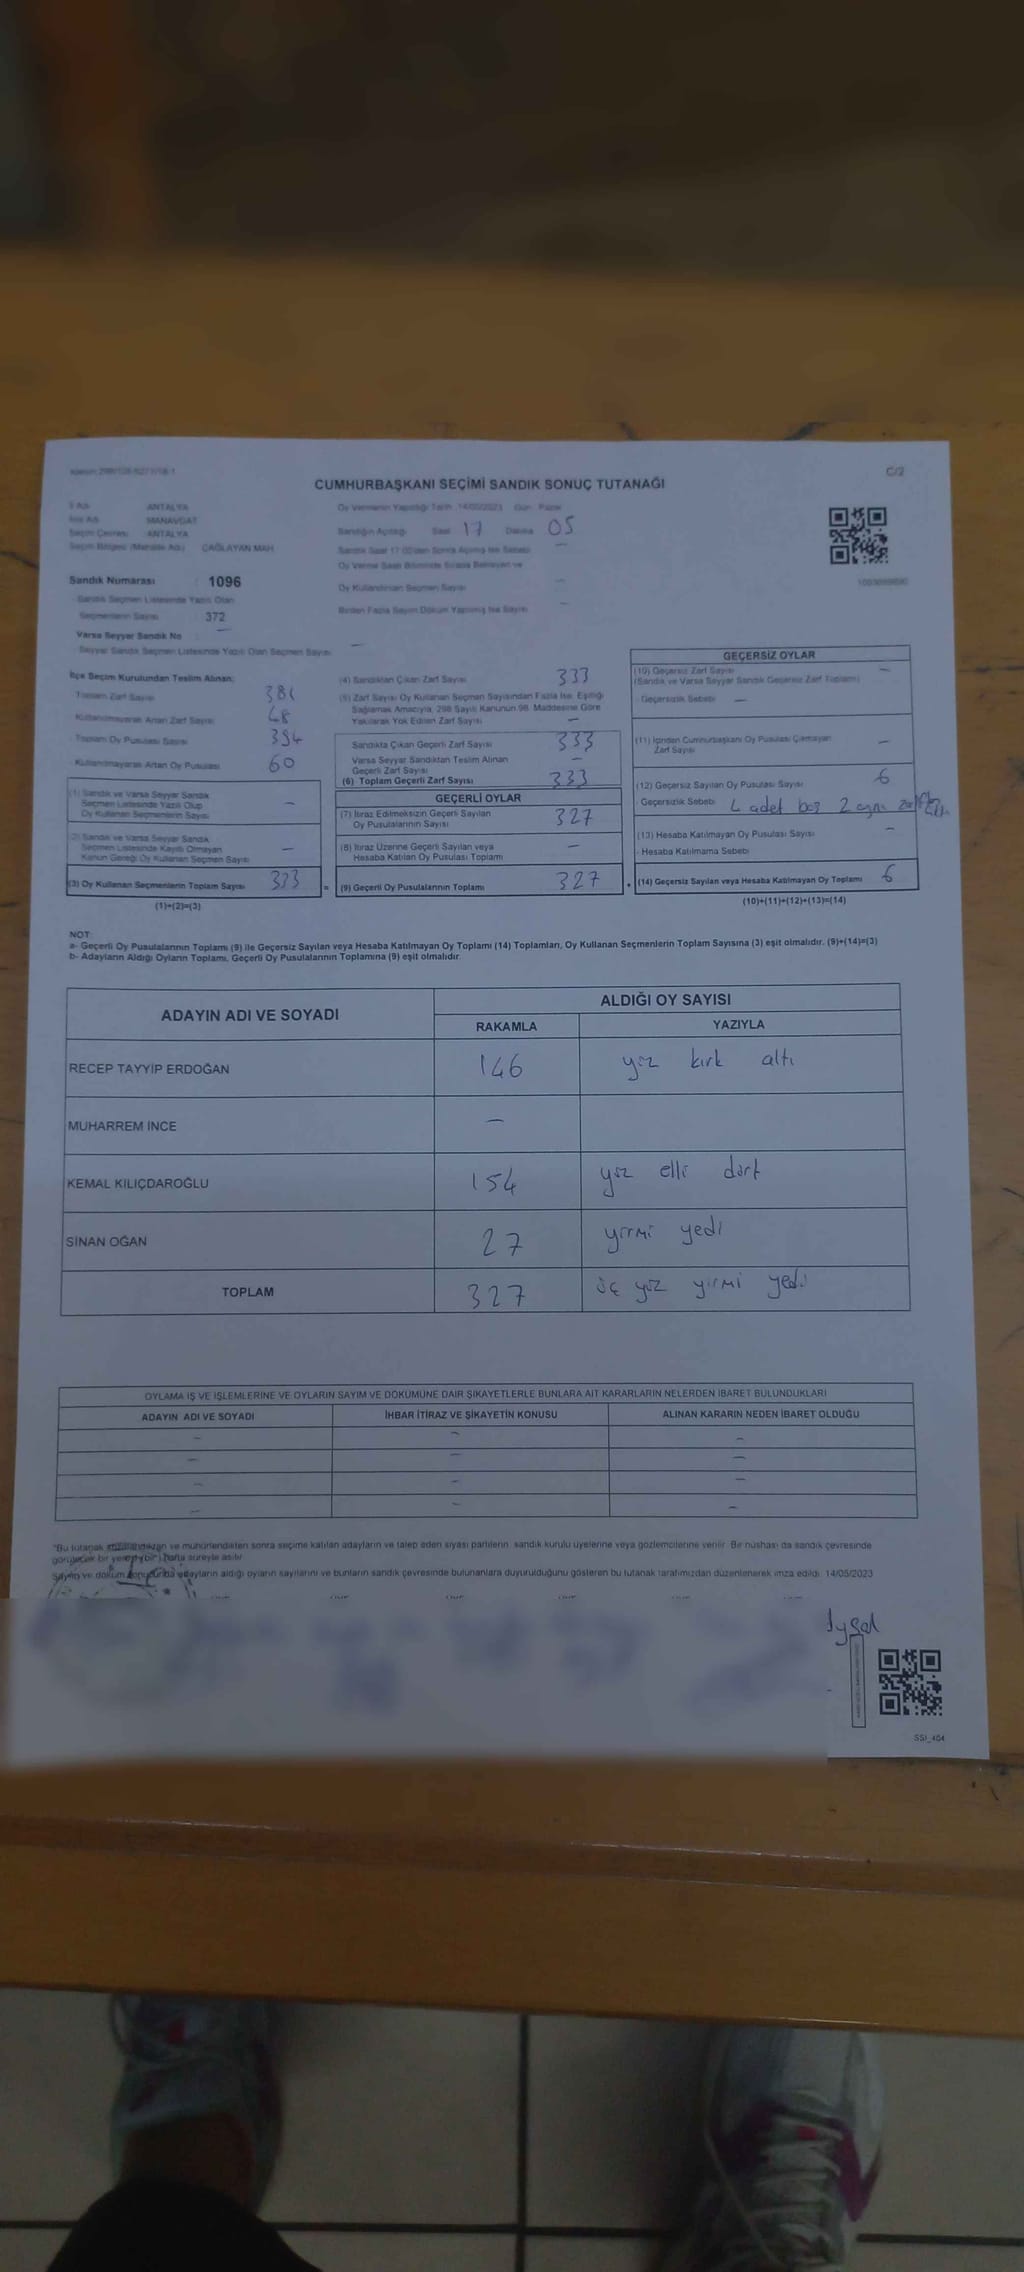 C/2
CUMHURBAŞKANI SEÇİMİ SANDIK SONUÇ TUTANAĞI
İl Adı ANTALYA
İlçe Adı MANAVGAT
Seçim Çevresi ANTALYA
Seçim Bölgesi (Mahalle Adı) ÇAĞLAYAN MAH
Sandık Numarası : 1096
Sandık Seçmen Listesinde Yazılı Olan
Seçmenlerin Sayısı 372
Varsa Seyyar Sandık No —
Seyyar Sandık Seçmen Listesinde Yazılı Olan Seçmen Sayısı —
Oy Vermenin Yapıldığı Tarih 14/05/2023 Gün Pazar
Sandığın Açılışı Saat 17 Dakika 05
Sandık Saat 17:00'den Sonra Açılmış İse Sebebi —
Oy Verme Saati Bitiminde Sırada Bekleyen ve
Oy Kullandırılan Seçmen Sayısı —
Birden Fazla Sayım Döküm Yapılmış İse Sayısı —
İlçe Seçim Kurulundan Teslim Alınan:
Toplam Zarf Sayısı
Kullanılmayarak Artan Zarf Sayısı 48
Toplam Oy Pusulası Sayısı
Kullanılmayarak Artan Oy Pusulası 60
(1) Sandık ve Varsa Seyyar Sandık
Seçmen Listesinde Yazılı Olup
Oy Kullanan Seçmenlerin Sayısı —
(2) Sandık ve Varsa Seyyar Sandık
Seçmen Listesinde Kayıtlı Olmayan
Kanun Gereği Oy Kullanan Seçmen Sayısı —
(3) Oy Kullanan Seçmenlerin Toplam Sayısı 333
(1)+(2)=(3)
(4) Sandıktan Çıkan Zarf Sayısı 333
(5) Zarf Sayısı Oy Kullanan Seçmen Sayısından Fazla İse, Eşitliği
Sağlamak Amacıyla, 298 Sayılı Kanunun 98. Maddesine Göre
Yakılarak Yok Edilen Zarf Sayısı —
Sandıkta Çıkan Geçerli Zarf Sayısı 333
Varsa Seyyar Sandıktan Teslim Alınan
Geçerli Zarf Sayısı —
(6) Toplam Geçerli Zarf Sayısı 333
GEÇERLİ OYLAR
(7) İtiraz Edilmeksizin Geçerli Sayılan
Oy Pusulalarının Sayısı 327
(8) İtiraz Üzerine Geçerli Sayılan veya
Hesaba Katılan Oy Pusulası Toplamı —
= (9) Geçerli Oy Pusulalarının Toplamı 327
GEÇERSİZ OYLAR
(10) Geçersiz Zarf Sayısı —
(Sandık ve Varsa Seyyar Sandık Geçersiz Zarf Toplamı)
- Geçersizlik Sebebi —
(11) İçinden Cumhurbaşkanı Oy Pusulası Çıkmayan
Zarf Sayısı —
(12) Geçersiz Sayılan Oy Pusulası Sayısı 6
- Geçersizlik Sebebi 4 adet boş 2 aynı
(13) Hesaba Katılmayan Oy Pusulası Sayısı —
- Hesaba Katılmama Sebebi
+ (14) Geçersiz Sayılan veya Hesaba Katılmayan Oy Toplamı 6
(10)+(11)+(12)+(13)=(14)
NOT:
a- Geçerli Oy Pusulalarının Toplamı (9) ile Geçersiz Sayılan veya Hesaba Katılmayan Oy Toplamı (14) Toplamları, Oy Kullanan Seçmenlerin Toplam Sayısına (3) eşit olmalıdır. (9)+(14)=(3)
b- Adayların Aldığı Oyların Toplamı, Geçerli Oy Pusulalarının Toplamına (9) eşit olmalıdır.
ADAYIN ADI VE SOYADI
ALDIĞI OY SAYISI
RAKAMLA YAZIYLA
RECEP TAYYİP ERDOĞAN 146 yüz kırk altı
MUHARREM İNCE —
KEMAL KILIÇDAROĞLU 154 yüz elli dört
SİNAN OĞAN 27 yirmi yedi
TOPLAM 327 üç yüz yirmi yedi
OYLAMA İŞ VE İŞLEMLERİNE VE OYLARIN SAYIM VE DÖKÜMÜNE DAİR ŞİKAYETLERLE BUNLARA AİT KARARLARIN NELERDEN İBARET BULUNDUKLARI
ADAYIN ADI VE SOYADI İHBAR İTİRAZ VE ŞİKAYETİN KONUSU ALINAN KARARIN NEDEN İBARET OLDUĞU
— — —
— — —
— — —
— — —
"Bu tutanak imzalandıktan ve mühürlendikten sonra seçime katılan adayların ve talep eden siyasi partilerin sandık kurulu üyelerine veya gözlemcilerine verilir. Bir nüshası da sandık çevresinde
görülecek bir yere (bir) hafta süreyle asılır
Sayım ve döküm sonucunda adayların aldığı oyların sayılarını ve bunların sandık çevresinde bulunanlara duyurulduğunu gösteren bu tutanak tarafımızdan düzenlenerek imza edildi. 14/05/2023
SSI_404